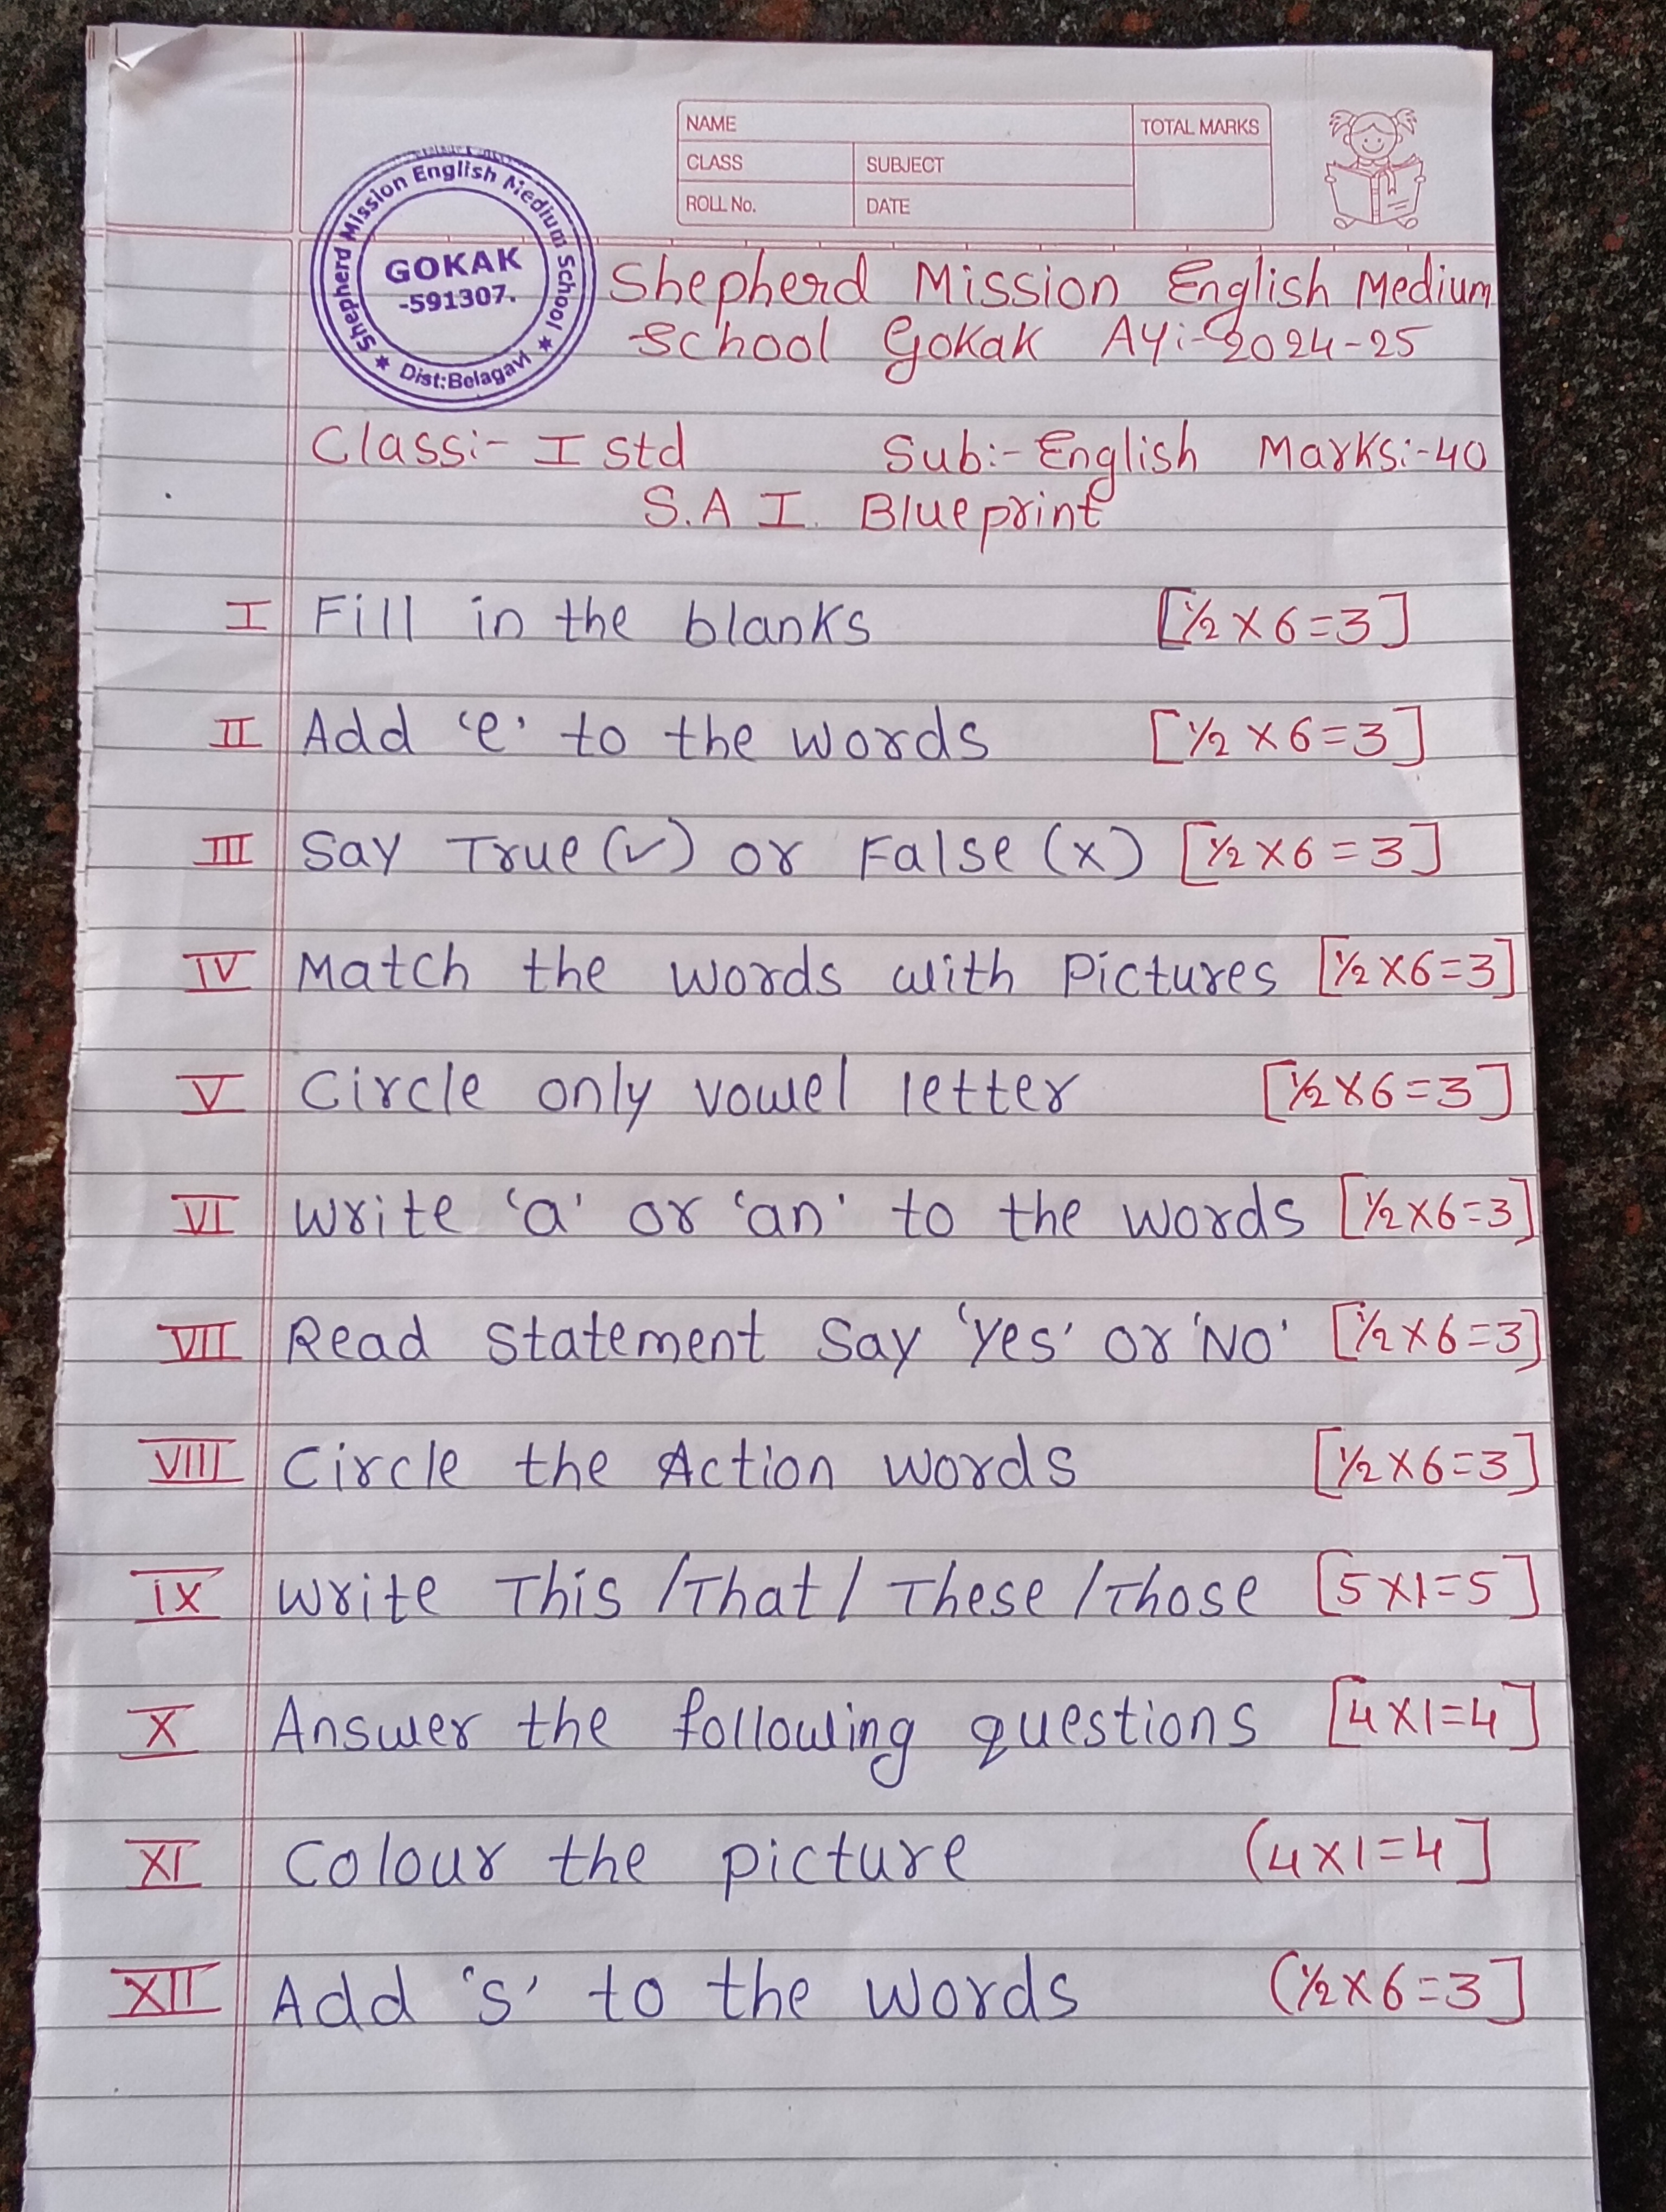 NAME
TOTAL MARKS
CLASS
SUBJECT
ROLL No.
DATE
Shepherd Mission English Medium School
GOKAK
-591307.
★ Dist:Belagavi ★
Shepherd Mission English Medium
School Gokak AY:-2024-25
Class:- I std Sub:- English Marks:-40
S.A I. Blueprint
I Fill in the blanks [½ X 6=3]
II Add 'e' to the words [½ X 6=3]
III Say True (✓) or False (x) [½ X 6 = 3]
IV Match the words with Pictures [½ X6=3]
V Circle only vowel letter [½ X6=3]
VI Write 'a' or 'an' to the words [½ X6=3]
VII Read statement Say 'Yes' or 'No' [½ X 6=3]
VIII Circle the Action words [½ X 6=3]
ix Write This /That / These /Those [5 X1=5]
X Answer the following questions [4 X1=4]
XI Colour the picture (4 X1=4]
XII Add 's' to the words (½ X 6=3]